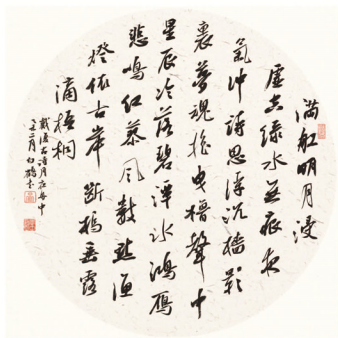 滿船明月浸
虛空綠水無痕夜
氣冲詩思浮沉檣影
裏夢魂搖曳櫓聲中
星辰冷落碧潭水鴻雁
悲鳴紅蓼風數點漁
燈依古岸斷橋垂露
滴梧桐
戴復古詩月夜舟中
二月